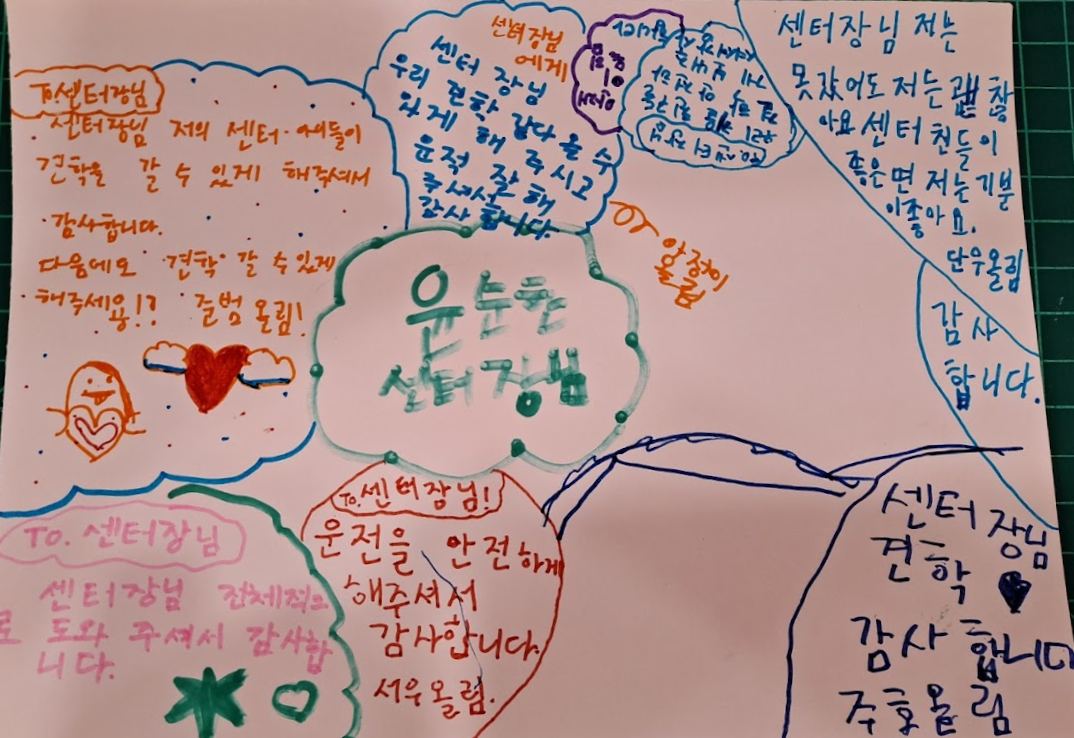 To. 센터장님
센터장님 저의 센터 애들이
견학을 갈 수 있게 해주셔서
감사합니다.
다음에도 견학 갈 수 있게
해주세용!? 줄범 올림!
센터장님
에게
센터 장님
우리 견학 갔다 올 수
있게 해 주시고
운전 잘 해
주셔서
감사 합니다.
올림
센터장님 저는
못갔어도 저는 괜찮
아요 센터 친들이
좋은면 저는 기분
이좋아요.
단우올림
감사
합니다.
윤순현
센터장님
To. 센터장님
센터장님 전체적으
로 도와 주셔서 감사합
니다.
To. 센터장님!
운전을 안전하게
해주셔서
감사합니다.
서우올림.
센터장님
견학
감사합니다
주호올림